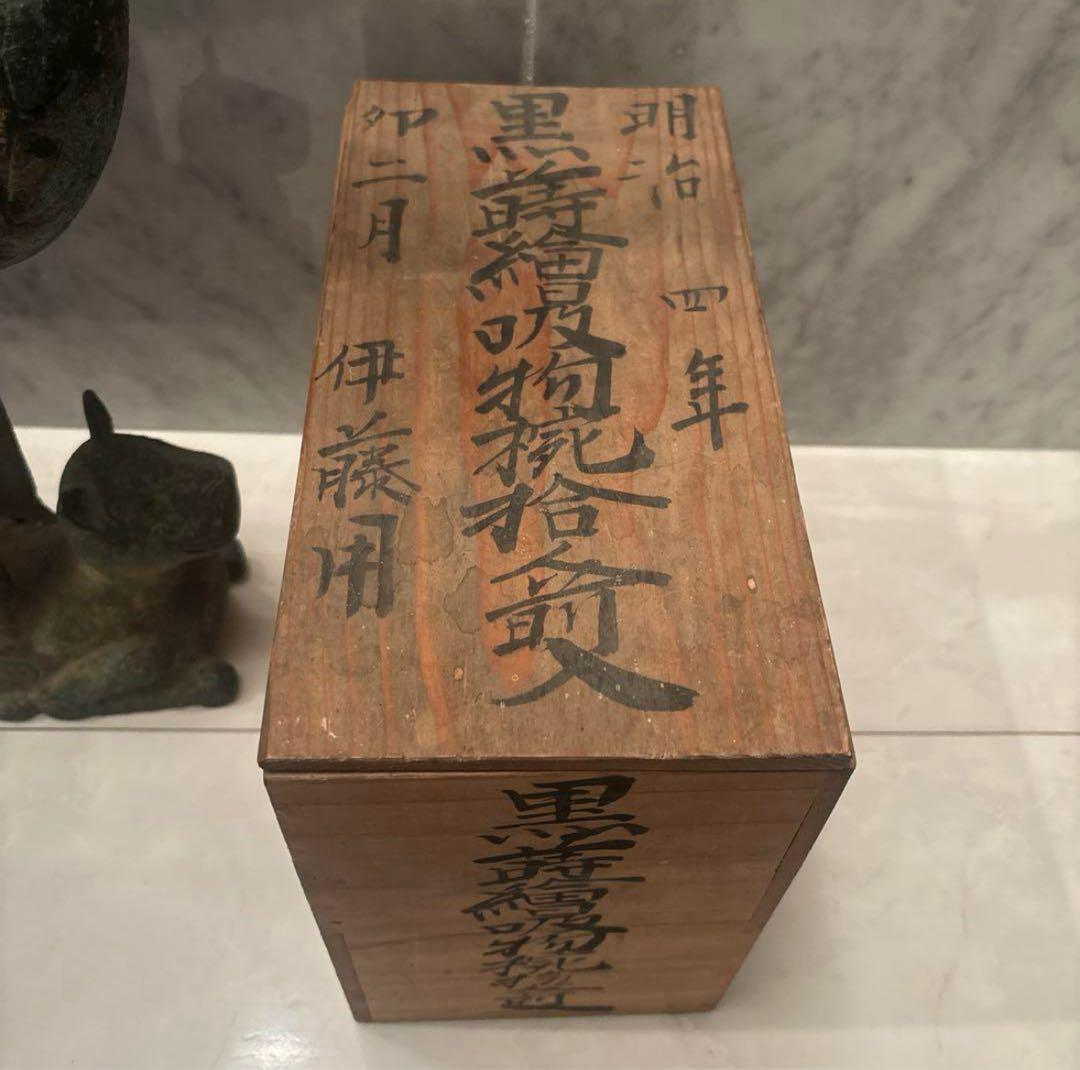 明治四年
黒蒔繪吸物椀拾人前入
卯二月
伊藤用
黒蒔繪吸物椀拾前